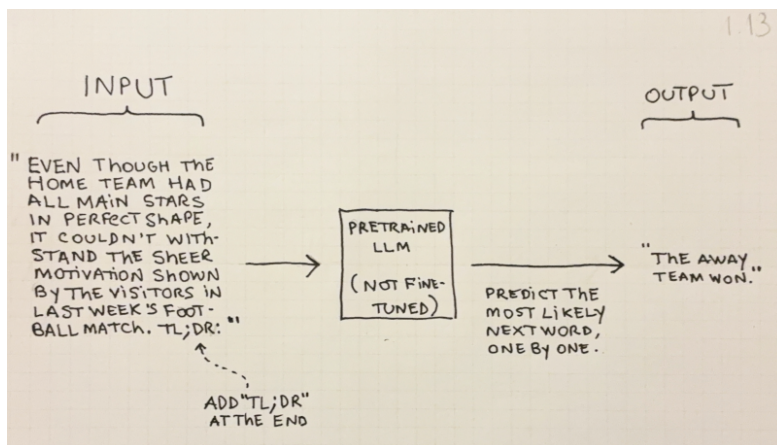 1.13
INPUT
"EVEN THOUGH THE
HOME TEAM HAD
ALL MAIN STARS
IN PERFECT SHAPE,
IT COULDN'T WITH-
STAND THE SHEER
MOTIVATION SHOWN
BY THE VISITORS IN
LAST WEEK'S FOOT-
BALL MATCH. TL;DR: "
ADD "TL;DR"
AT THE END
PRETRAINED
LLM
(NOT FINE-
TUNED)
PREDICT THE
MOST LIKELY
NEXT WORD,
ONE BY ONE.
OUTPUT
"THE AWAY
TEAM WON."